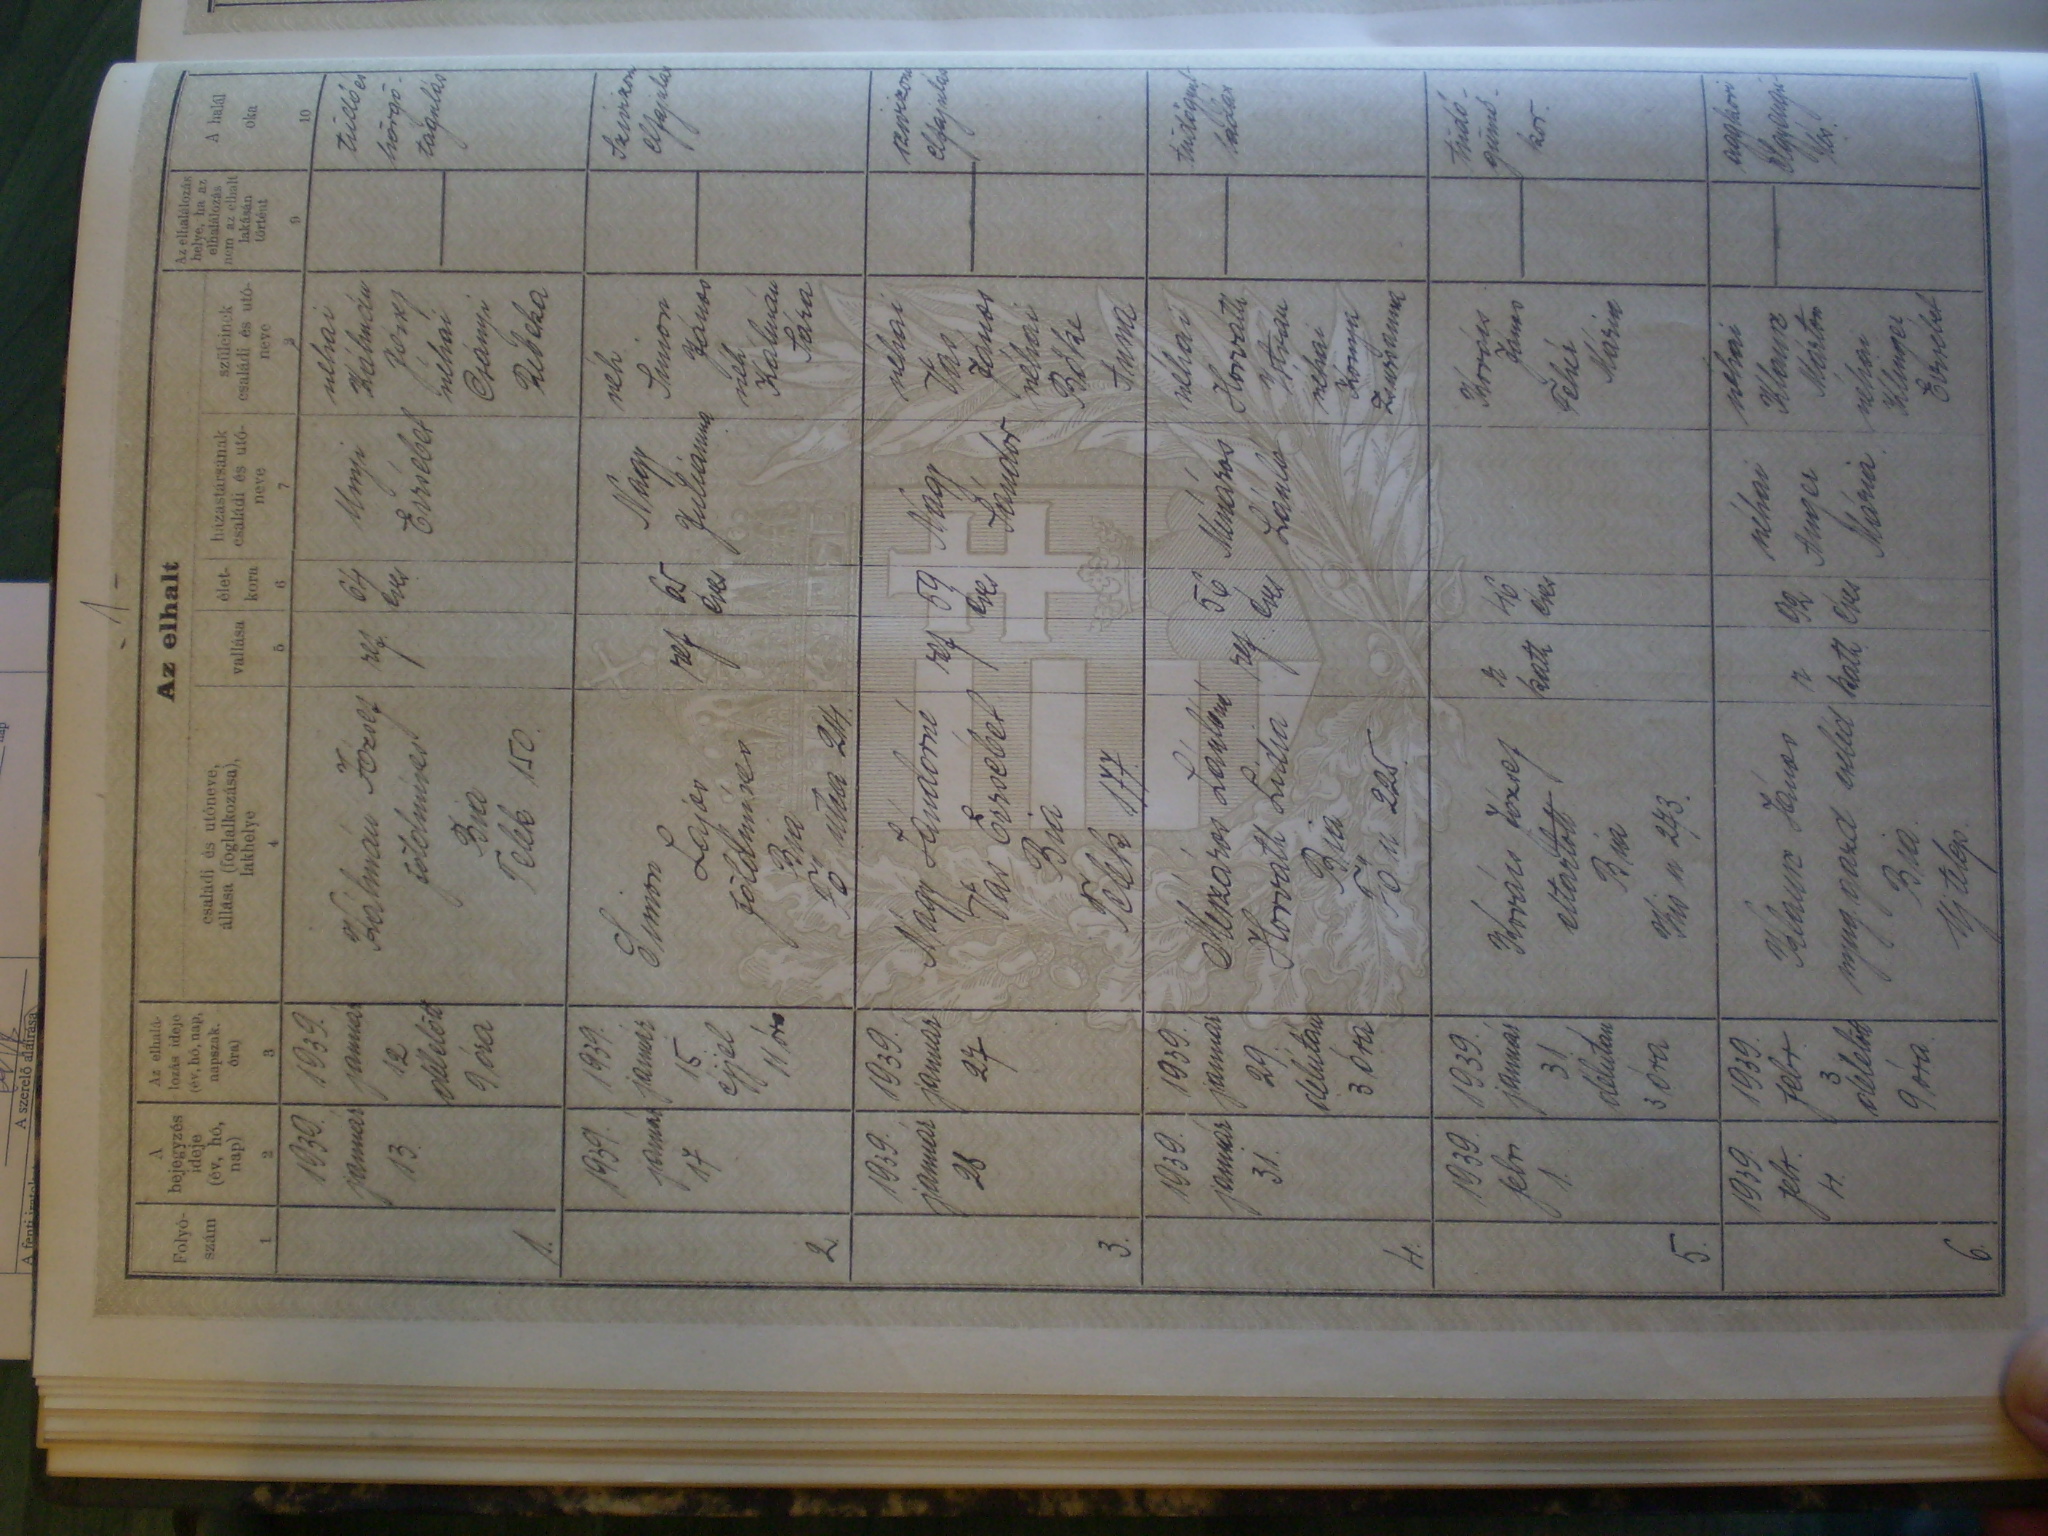 - 1 -
Az elhalt
Folyó-
szám
A
bejegyzés
ideje
(év, hó,
nap)
Az elhalá-
lozás ideje
(év, hó, nap,
napszak,
óra)
családi és utóneve,
állása (foglalkozása),
lakhelye
vallása
élet-
kora
házastársának
családi és utó-
neve
szüleinek
családi és utó-
neve
Az elhalálozás
helye, ha az
elhalálozás
nem az elhalt
lakásán
történt
A halál
oka
1
2
3
4
5
6
7
8
9
10
1.
1939.
január
13.
1939.
január
12
délelőtt
9 óra
Kálmán József
földmíves
Bia
Telek 150.
ref
64
éves
Erzsébet
néhai
Kálmán
József
néhai
Csányi
Rebeka
tüdő és
hörgő-
tágulás
2.
1939.
január
17
1939.
január
15
éjjel
11 óra
Simon
Lajos
földmíves
Bia
Fő utca 24.
ref
65
éves
Nagy
Julianna
néh
Simon
János
néh
Kálmán
Sára
Szívizom
elfajulás
3.
1939.
január
28
1939.
január
27
Nagy Sándorné
Vas Erzsébet
Bia
Telek 177.
ref
59
éves
Nagy
Sándor
néhai
Vas
János
néhai
Bőke
Anna
szívizom
elfajulás
4.
1939.
január
31.
1939.
január
29
délután
3 óra
Mészáros Lászlóné
Horváth Lidia
Bia
Fő u 225.
ref
56
éves
Mészáros
László
néhai
Horváth
István
néhai
Zsuzsanna
5.
1939.
febr
1.
1939.
január
31
délután
3 óra
Kovács József
eltartott
Bia
Kis u 273.
r
kath
46
éves
Kovács
János
Fehér
Mária
tüdő-
güműs-
kór.
6.
1939.
febr.
4.
1939.
febr
3
délelőtt
9 óra
János
Bia.
Újtelep.
r
kath
92
éves
néhai
Anger
Mária
néhai
Márton
néhai
Erzsébet
aggkori
elgyengü-
lés.
A szerelő aláírása
nap